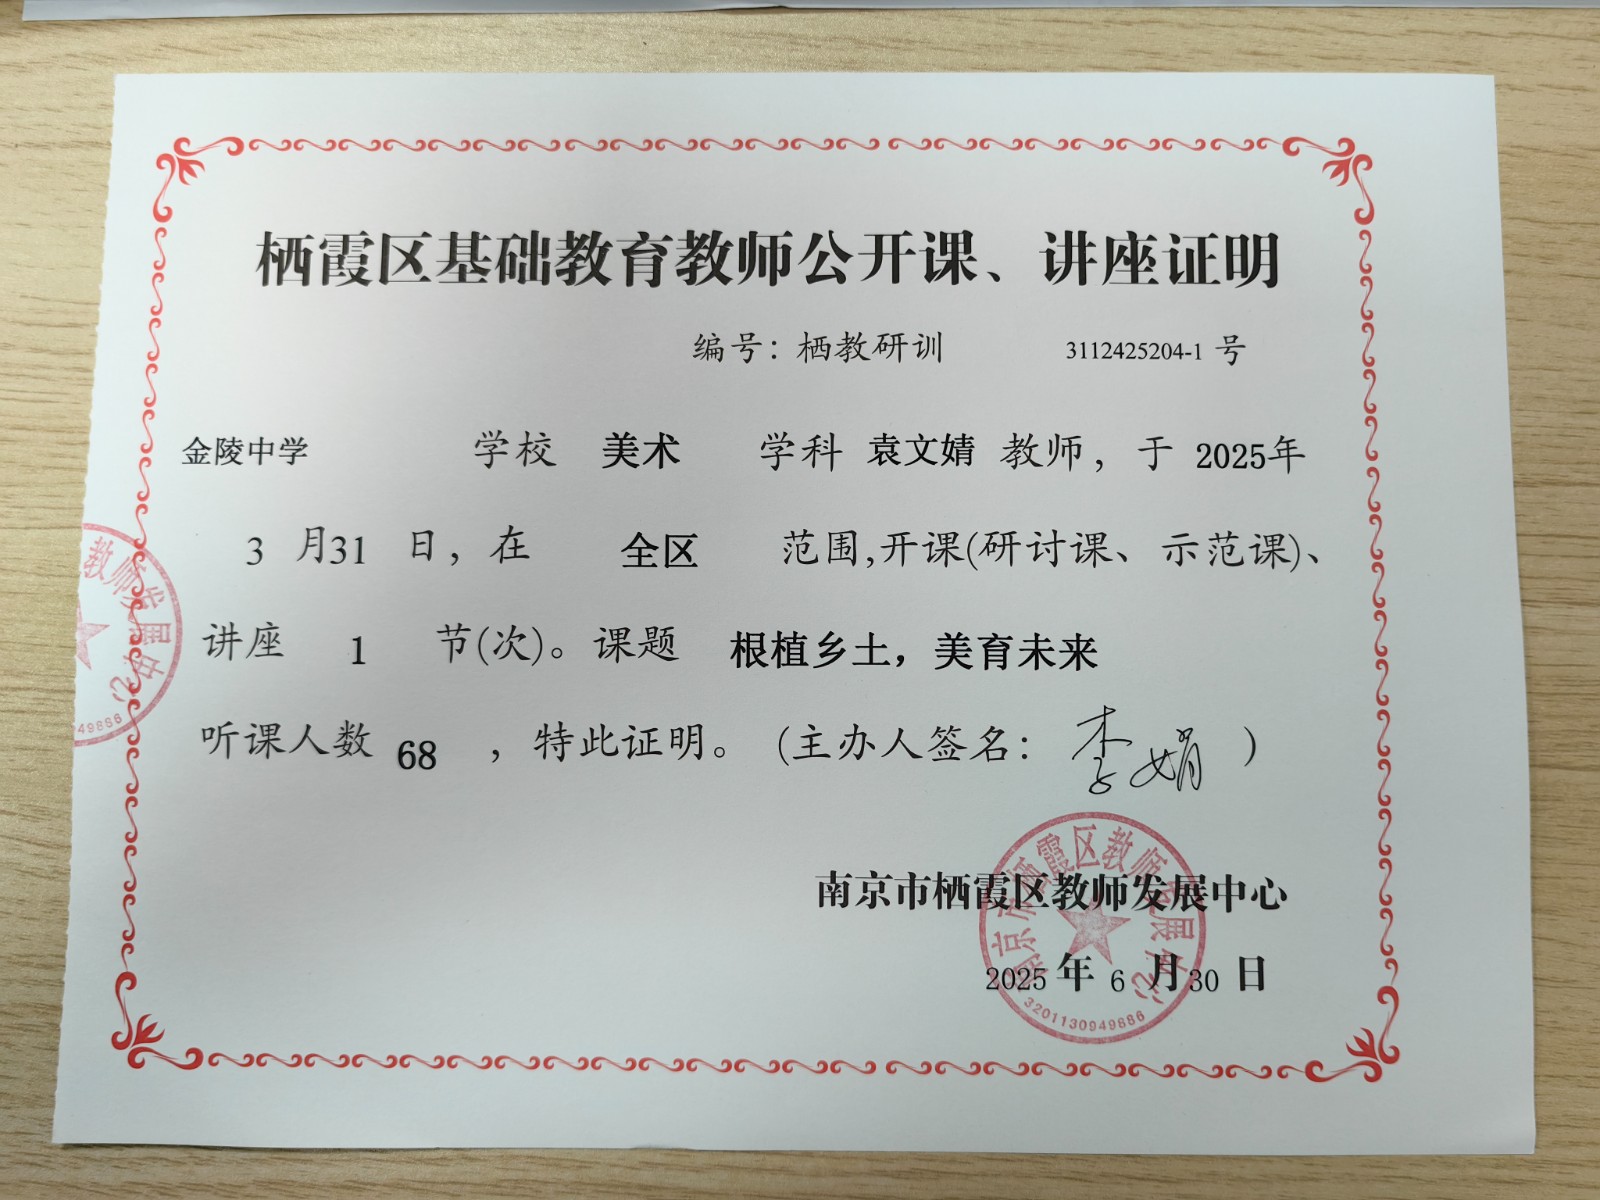 栖霞区基础教育教师公开课、讲座证明
编号：栖教研训 3112425204-1 号
金陵中学 学校 美术 学科 袁文婧 教师，于 2025年
3 月31 日，在 全区 范围,开课(研讨课、示范课)、
讲座 1 节(次)。课题 根植乡土，美育未来
听课人数 68 ，特此证明。（主办人签名：李娟）
南京市栖霞区教师发展中心
2025 年 6 月30 日
南京市栖霞区教师发展中心
3201130949886
教师发展中心
49886